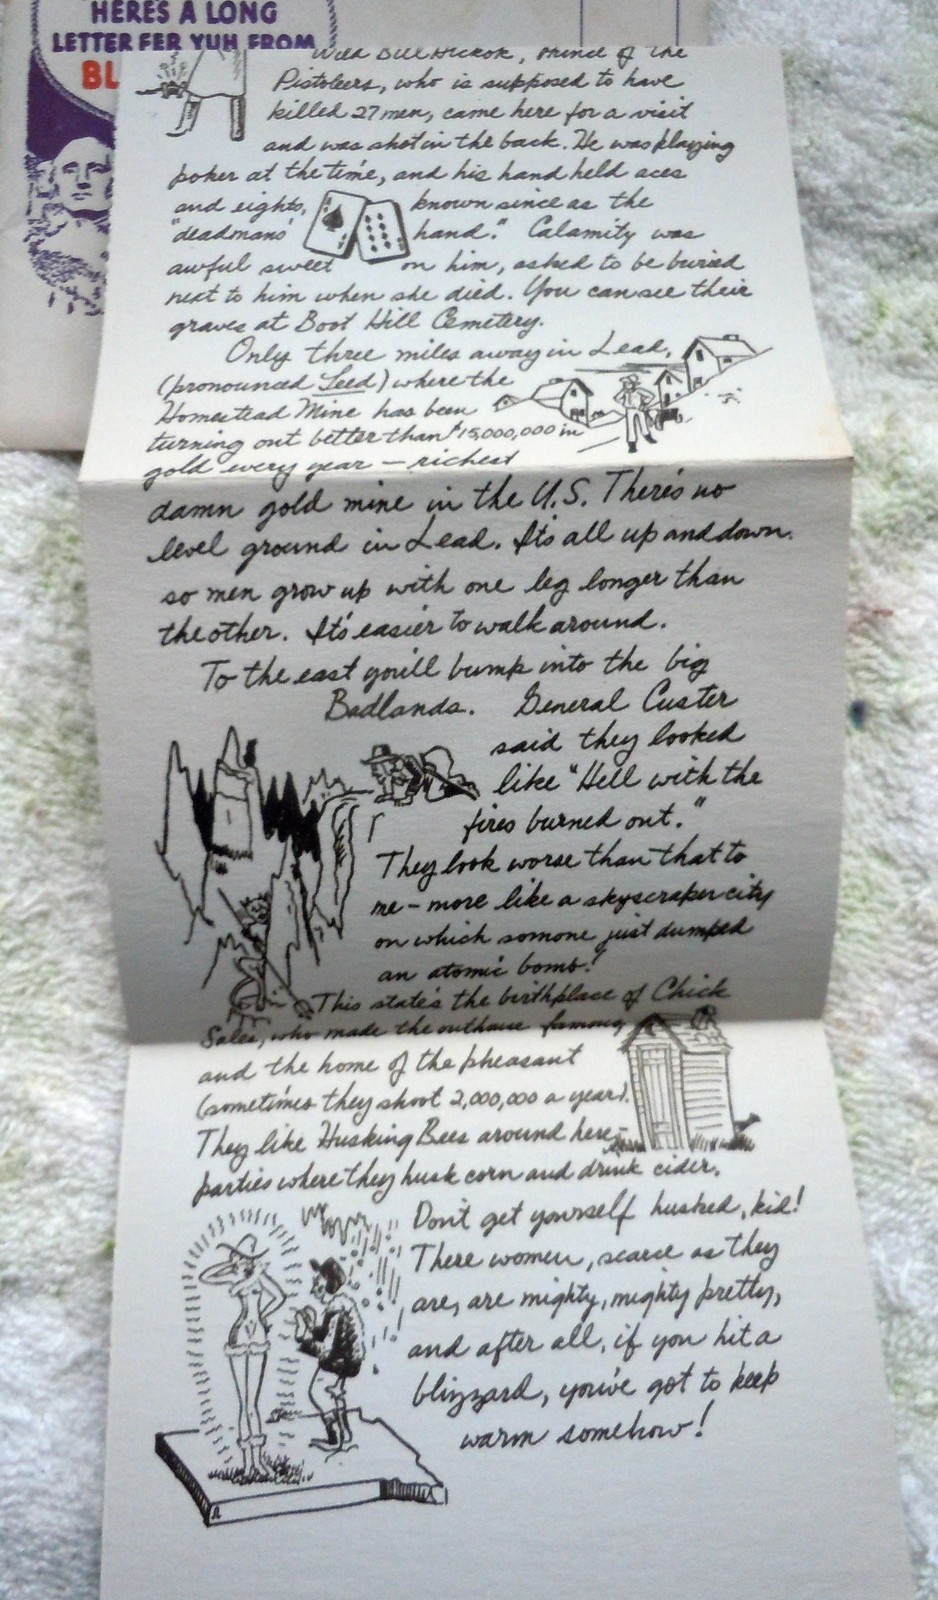 HERE'S A LONG
LETTER FER YUH FROM
BL
Wild Bill Hickok, Prince of the
Pistoleers, who is supposed to have
killed 27 men, came here for a visit
and was shot in the back. He was playing
poker at the time, and his hand held aces
and eights, known since as the
"deadmans' hand." Calamity was
awful sweet on him, asked to be buried
next to him when she died. You can see their
graves at Boot Hill Cemetery.
Only three miles away in Lead,
(pronounced Leed) where the
Homestead Mine has been
turning out better than $15,000,000 in
gold every year — richest
damn gold mine in the U.S. There's no
level ground in Lead. It's all up and down.
so men grow up with one leg longer than
the other. It's easier to walk around.
To the east you'll bump into the big
Badlands. General Custer
said they looked
like "Hell with the
fires burned out."
They look worse than that to
me - more like a skyscraper city
on which somone just dumped
an atomic bomb!
This state's the birthplace of Chick
Sales, who made the outhouse famous,
and the home of the pheasant
(sometimes they shoot 2,000,000 a year).
They like Husking Bees around here -
parties where they husk corn and drink cider.
Don't get yourself husked, kid!
There women, scarce as they
are, are mighty, mighty pretty,
and after all, if you hit a
blizzard, you've got to keep
warm somehow!